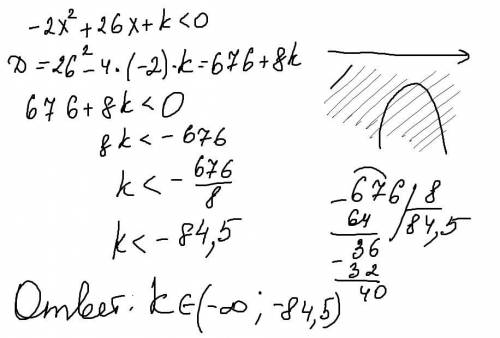 -2x² + 26x + k < 0
D = 26² - 4·(-2)·k = 676 + 8k
676 + 8k < 0
8k < -676
k < - 676/8
k < -84,5
- 676 | 8
64 | 84,5
- 36
32
40
Ответ: k ∈ (-∞; -84,5)